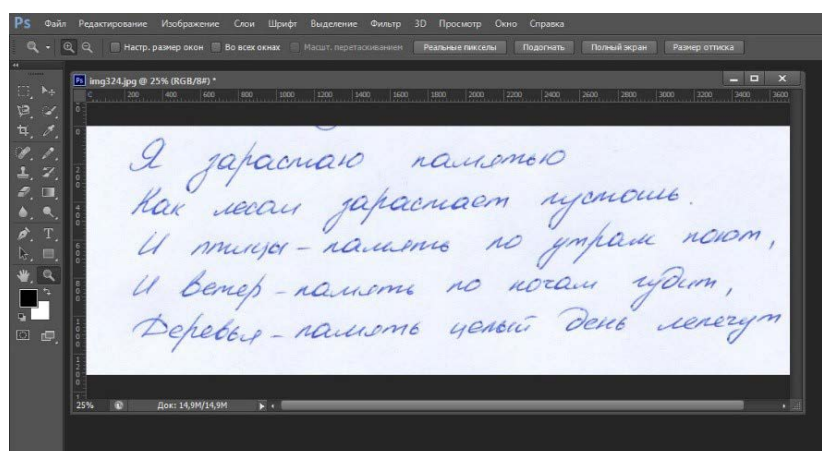 Ps Файл Редактирование Изображение Слои Шрифт Выделение Фильтр 3D Просмотр Окно Справка
Настр. размер окон Во всех окнах Масшт. перетаскиванием Реальные пикселы Подогнать Полный экран Размер оттиска
Ps img324.jpg @ 25% (RGB/8#) *
200 400 600 800 1000 1200 1400 1600 1800 2000 2200 2400 2600 2800 3000 3200 3400 3600
Я зарастаю памятью
Как лесом зарастает пустошь.
И птицы - память по утрам поют,
И ветер - память по ночам гудит,
Деревья - память целый день лепечут
25% Док: 14,9M/14,9M